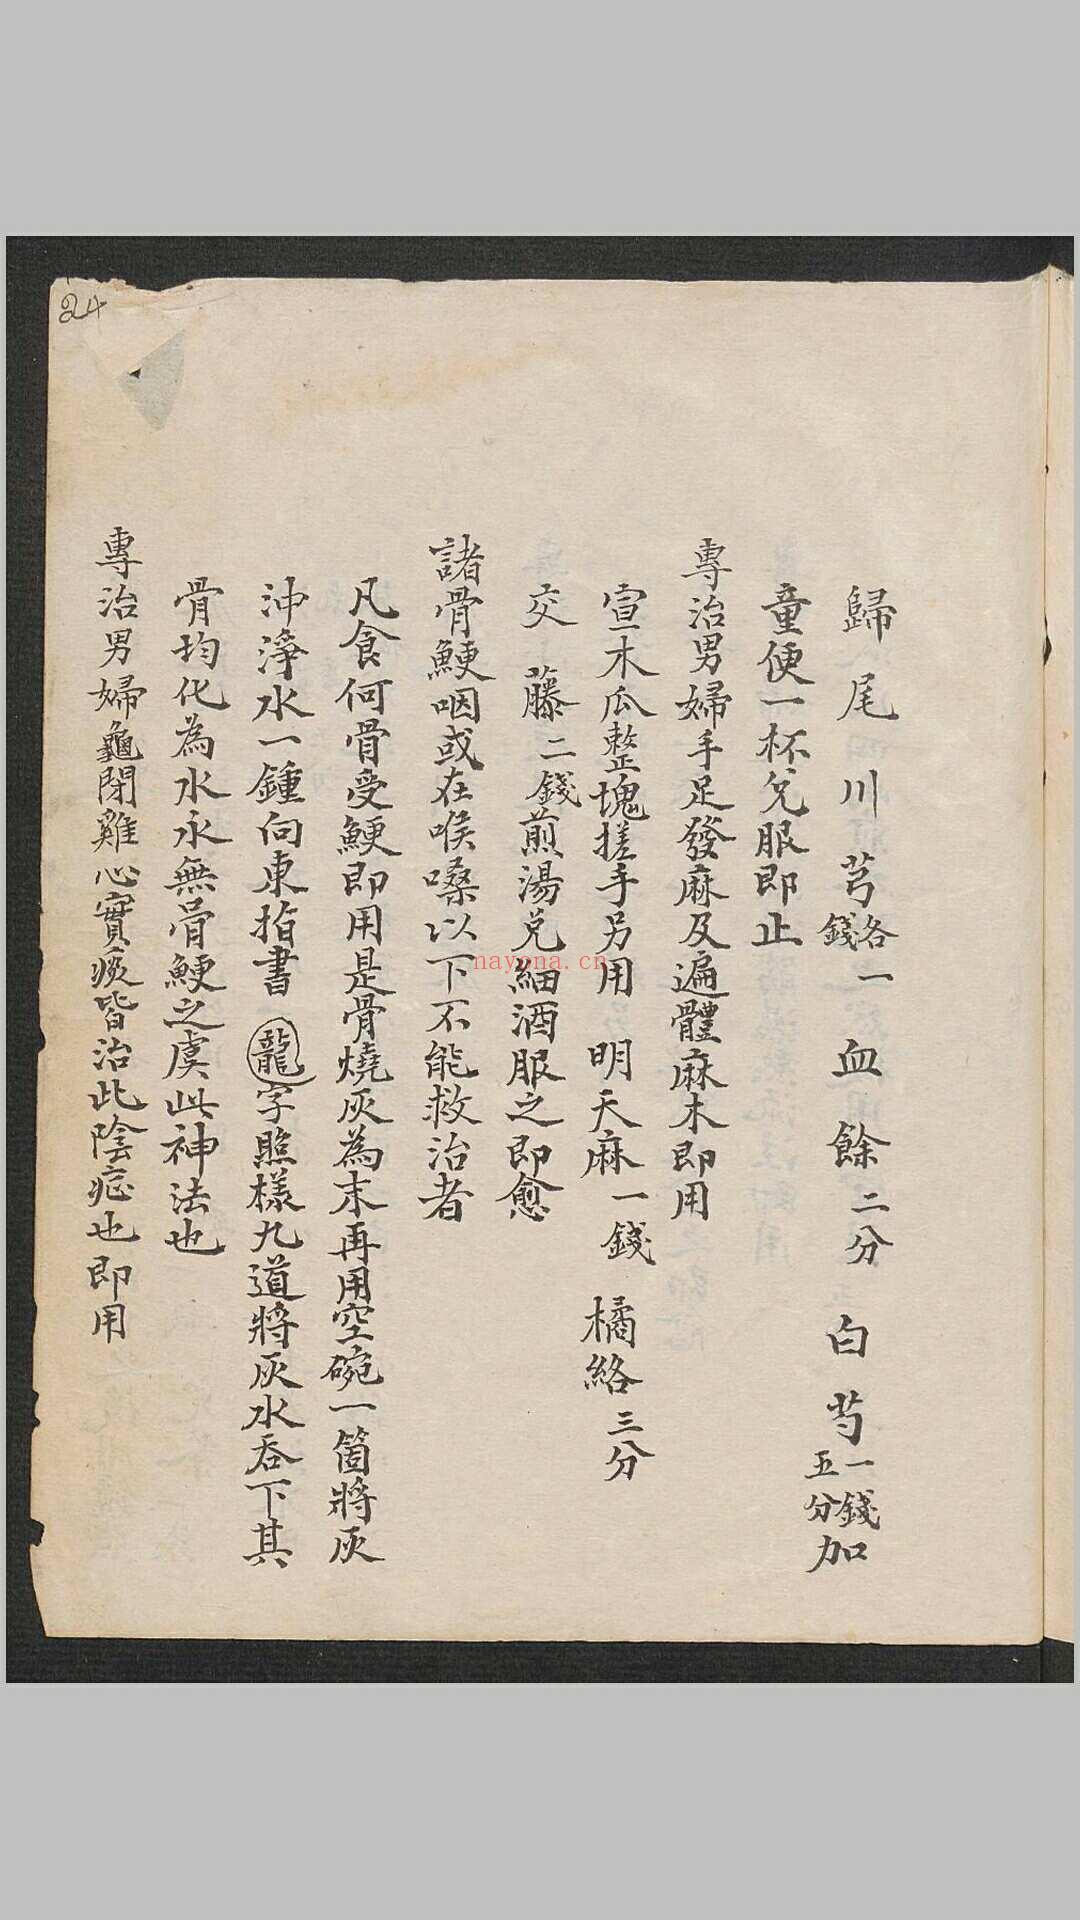 24
歸尾川芎各一錢血餘二分白芍一錢五分加
童便一杯兌服即止
專治男婦手足發麻及遍體麻木即用
宣木瓜整塊搓手另用明天麻一錢橘絡三分
交藤二錢煎湯兌細酒服之即愈
諸骨鯁咽或在喉嗓以下不能救治者
凡食何骨受鯁即用是骨燒灰為末再用空碗一箇將灰
沖淨水一鍾向東指書龍字照樣九道將灰水吞下其
骨均化為水永無骨鯁之虞此神法也
專治男婦龜閉雞心實痰皆治此陰症也即用
nayona.cn